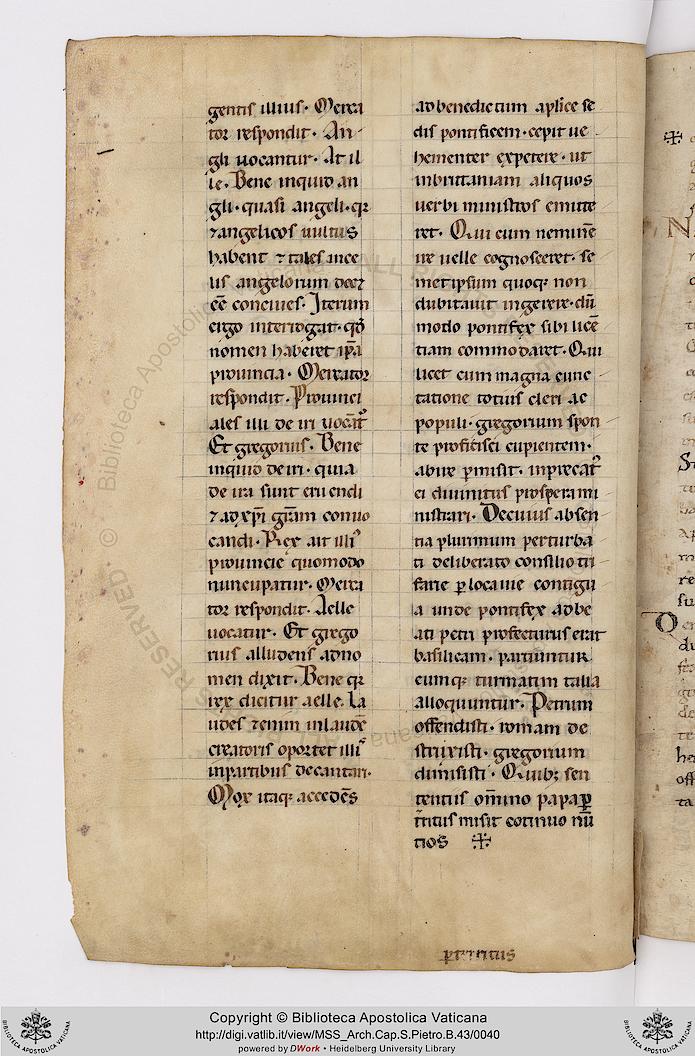 gentis illius. Merca
tor respondit. An
gli uocantur. At il
le. Bene inquid an
gli. quasi angeli. qꝛ
⁊ angelicos uultus
habent ⁊ tales in ce
lis angelorum dec&
eē conciues. Iterum
ergo interrogat. qđ
nomen haberet ip̄a
prouincia. Mercator
respondit. Prouinci
ales illi de iri uocāt᷑
Et gregorius. Bene
inquid de iri. quia
de ira sunt eruendi
⁊ ad xp̄i grām conuo
candi. Rex ait illiꝰ
prouincie quomodo
nuncupatur. Merca
tor respondit. Aelle
uocatur. Et grego
rius alludens ad no
men dixit. Bene qꝛ
rex dicitur aelle. La
udes &enim in laudē
creatoris oportet illiꝰ
in partibus decantari.
Mox itaq; accedēs
ad benedictum apl̄ice se
dis pontificem. cepit ue
hementer expetere. ut
in brittaniam aliquos
uerbi ministros emitte
ret. Qui cum neminē
ire uelle cognosceret. se
met ipsum quoq; non
dubitauit ingerere. dū
modo pontifex sibi licē
tiam commodaret. Qui
licet cum magna cunc
tatione totius cleri ac
populi. gregorium spon
te proficisci cupientem.
abire ꝑmisit. inprecat᷑
ei diuinitus prospera mi
nistrari. De cuius absen
tia plurimum perturba
ti deliberato consilio tri
farie ꝑ loca uie contigu
a unde pontifex ad be
ati petri profecturus erat
basilicam. partiuntur
eumq; turmatim talia
alloquuntur. Petrum
offendisti. romam de
struxisti. gregorium
dimisisti. Quib; sen
tentiis om̄ino papa ꝑ
t̄ritus misit cotinuo nū
tios ✠
ꝑt̄rritus
Copyright © Biblioteca Apostolica Vaticana
http://digi.vatlib.it/view/MSS_Arch.Cap.S.Pietro.B.43/0040
powered by DWork • Heidelberg University Library